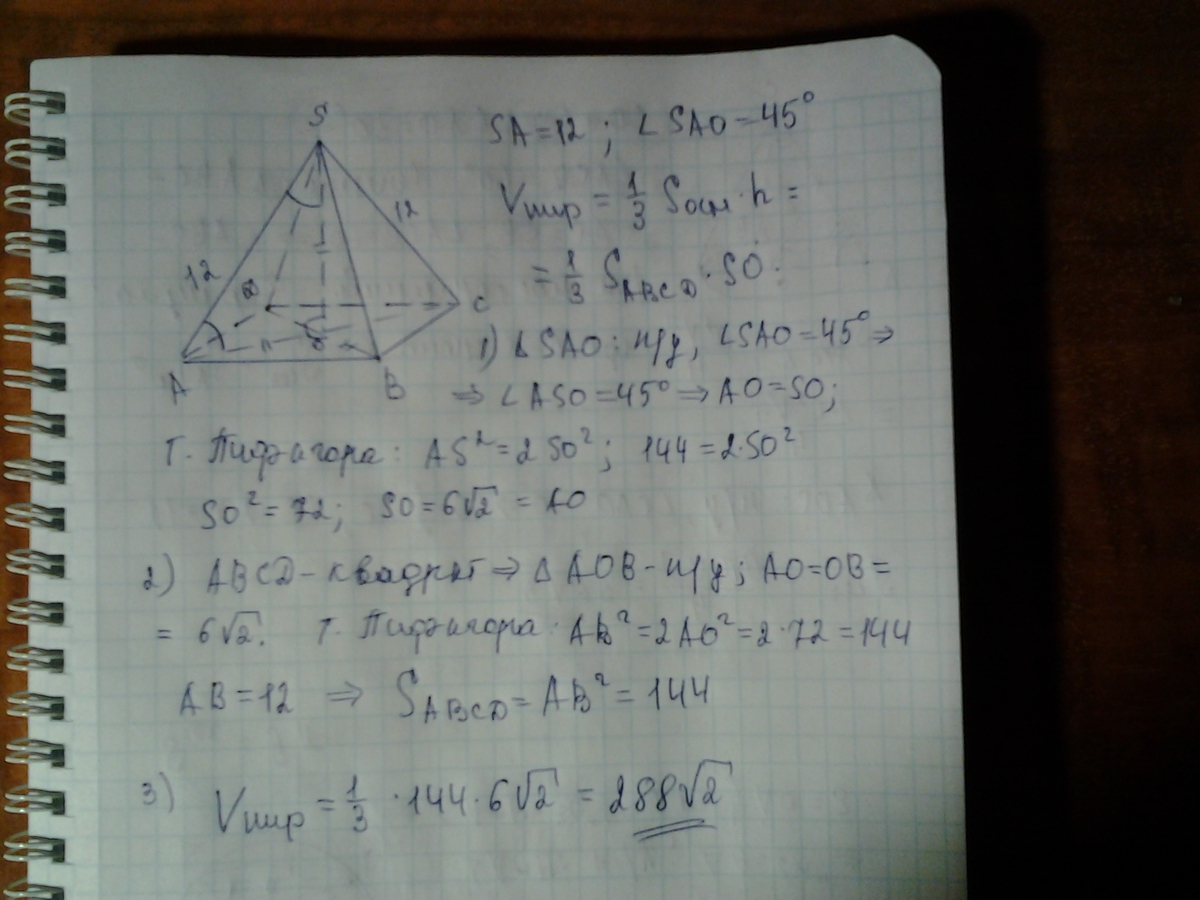 S
12
12
D
C
O
A
B
SA=12 ; ∠SAO=45°
Vпир = 1/3 Sосн·h =
= 1/3 S_ABCD·SO.
1) ΔSAO: п/у, ∠SAO=45° ⇒
⇒ ∠ASO=45° ⇒ AO=SO;
т. Пифагора: AS²=2SO²; 144=2·SO²
SO²=72; SO=6√2 = AO
2) ABCD-квадрат ⇒ Δ AOB-п/у; AO=OB=
= 6√2. т. Пифагора: AB²=2AO²=2·72=144
AB=12 ⇒ S_ABCD=AB²=144
3) Vпир = 1/3 ·144·6√2 = 288√2